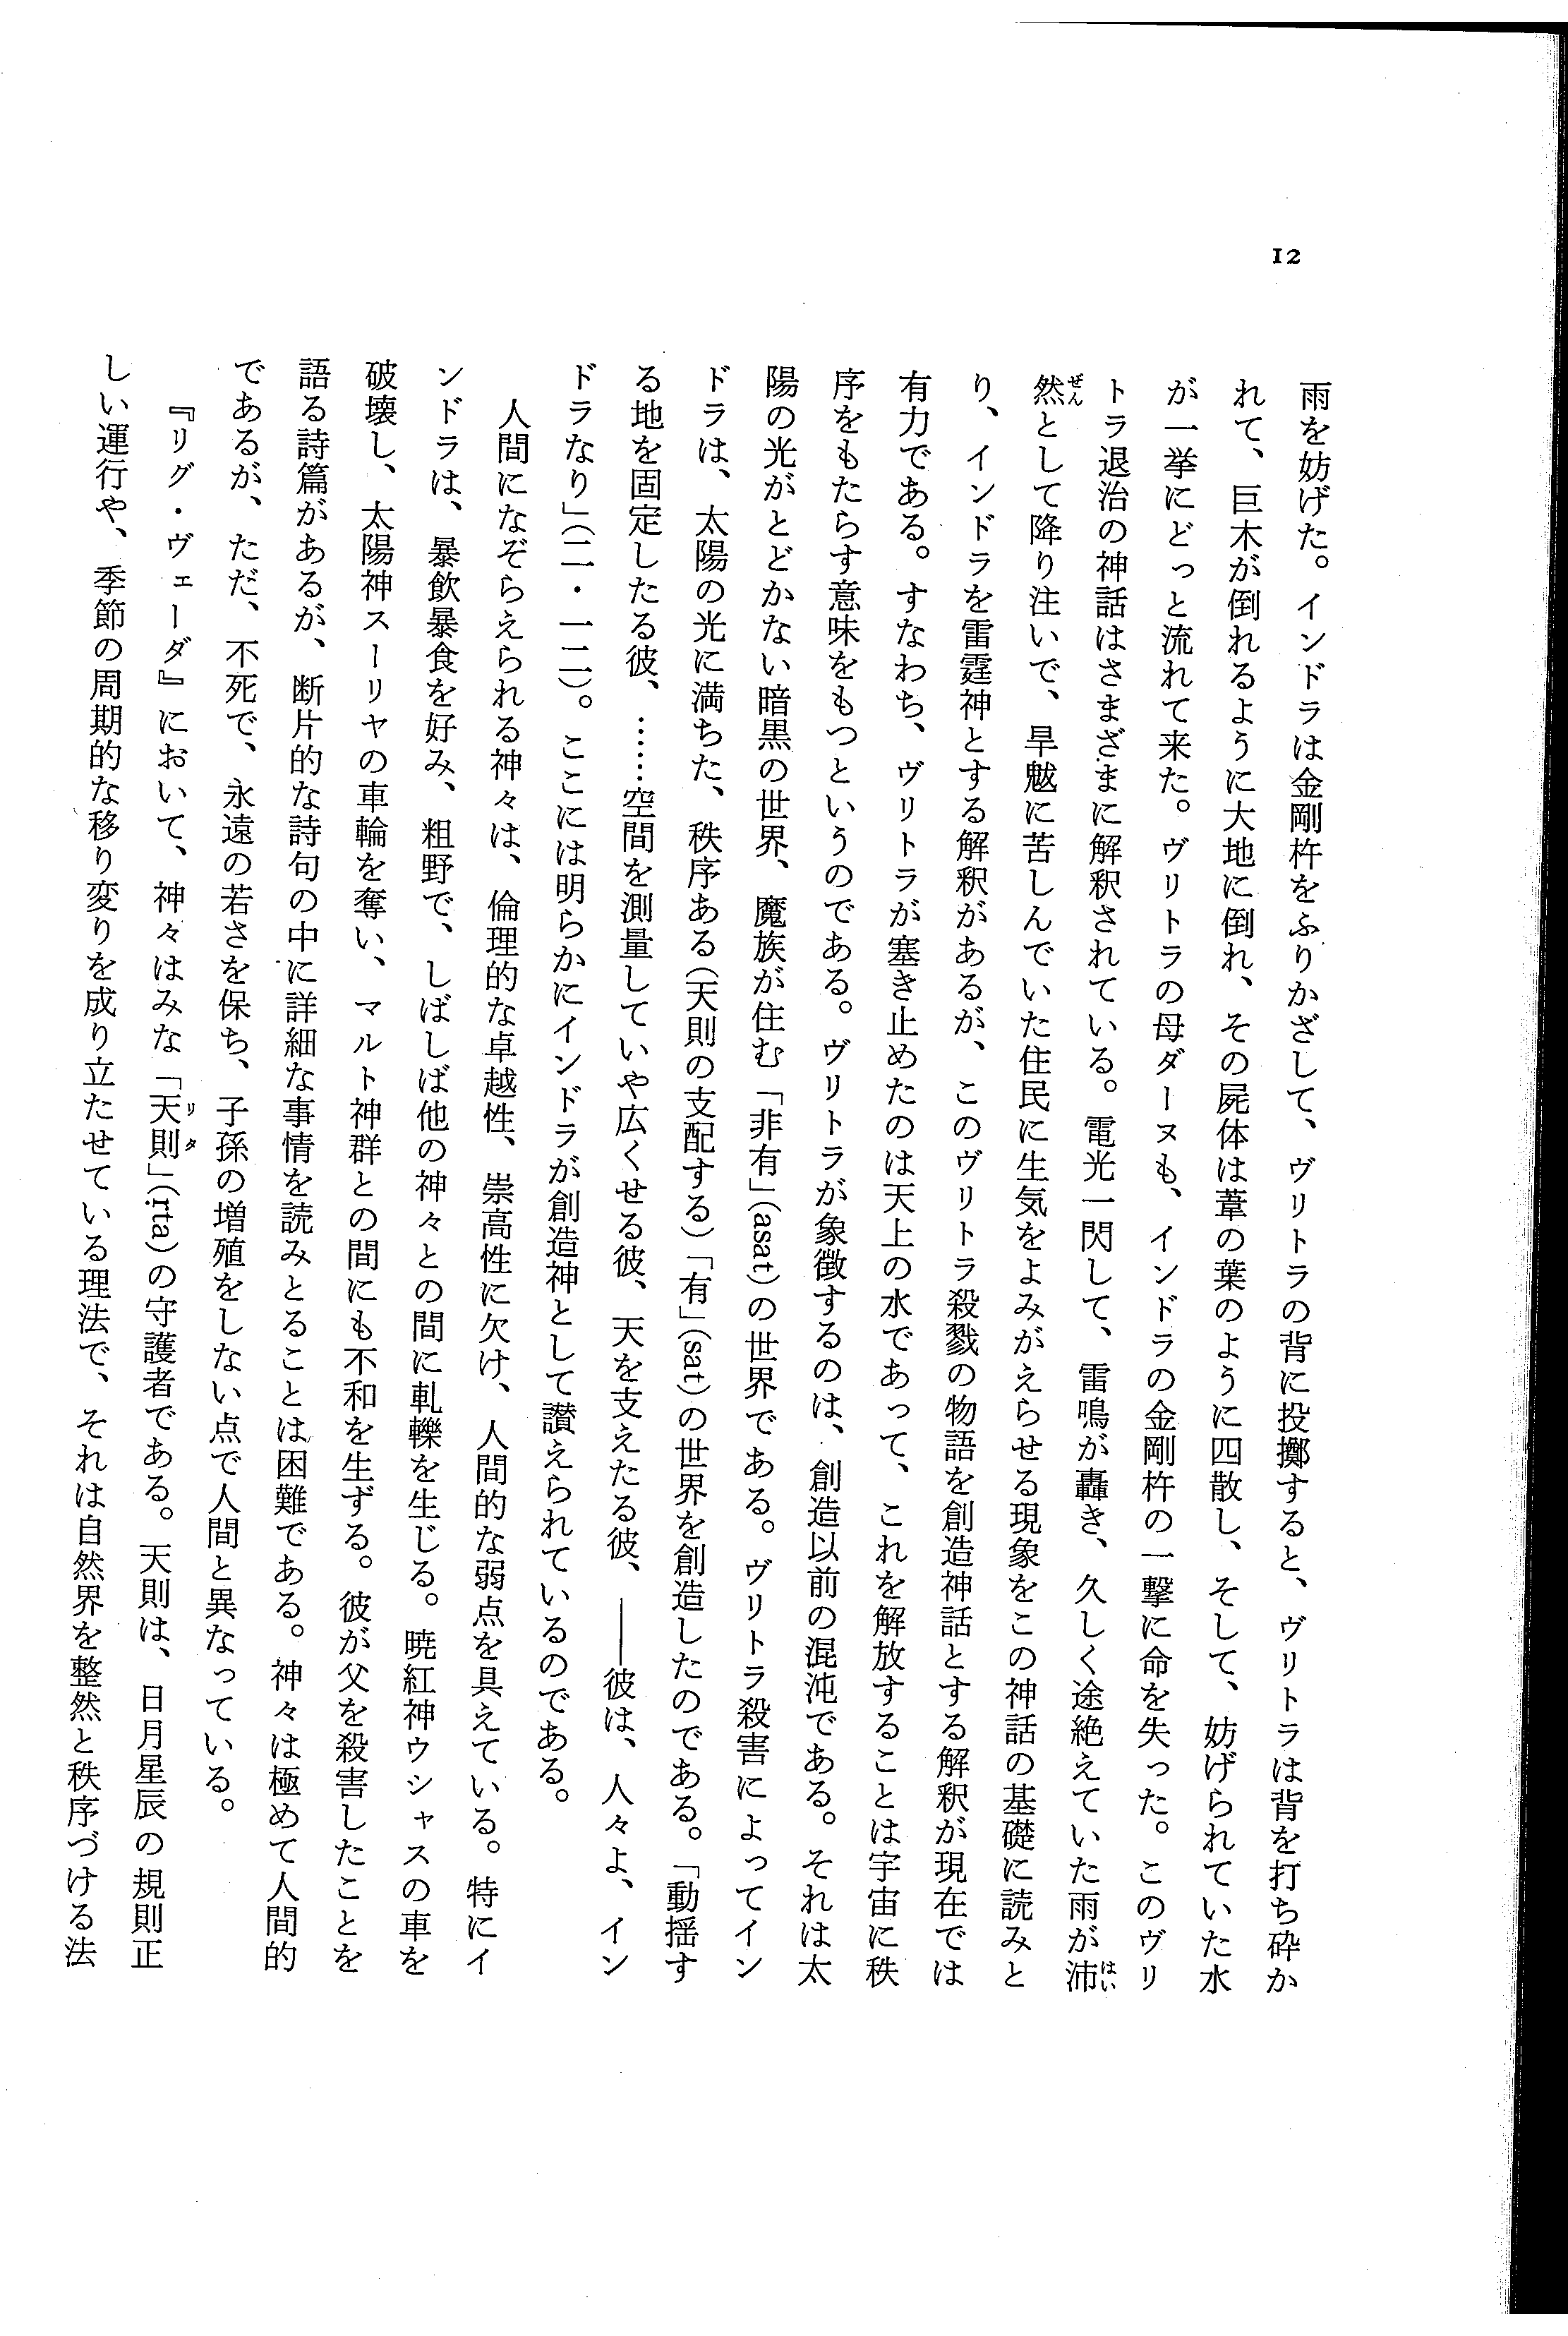 12
雨を妨げた。インドラは金剛杵をふりかざして、ヴリトラの背に投擲すると、ヴリトラは背を打ち砕か
れて、巨木が倒れるように大地に倒れ、その屍体は葦の葉のように四散し、そして、妨げられていた水
が一挙にどっと流れて来た。ヴリトラの母ダーヌも、インドラの金剛杵の一撃に命を失った。このヴリ
トラ退治の神話はさまざまに解釈されている。電光一閃して、雷鳴が轟き、久しく途絶えていた雨が沛はい
然ぜんとして降り注いで、旱魃に苦しんでいた住民に生気をよみがえらせる現象をこの神話の基礎に読みと
り、インドラを雷霆神とする解釈があるが、このヴリトラ殺戮の物語を創造神話とする解釈が現在では
有力である。すなわち、ヴリトラが塞き止めたのは天上の水であって、これを解放することは宇宙に秩
序をもたらす意味をもつというのである。ヴリトラが象徴するのは、創造以前の混沌である。それは太
陽の光がとどかない暗黒の世界、魔族が住む「非有」(asat)の世界である。ヴリトラ殺害によってイン
ドラは、太陽の光に満ちた、秩序ある(天則の支配する)「有」(sat)の世界を創造したのである。「動揺す
る地を固定したる彼、……空間を測量していや広くせる彼、天を支えたる彼、――彼は、人々よ、イン
ドラなり」(二・一二)。ここには明らかにインドラが創造神として讃えられているのである。
人間になぞらえられる神々は、倫理的な卓越性、崇高性に欠け、人間的な弱点を具えている。特にイ
ンドラは、暴飲暴食を好み、粗野で、しばしば他の神々との間に軋轢を生じる。暁紅神ウシャスの車を
破壊し、太陽神スーリヤの車輪を奪い、マルト神群との間にも不和を生ずる。彼が父を殺害したことを
語る詩篇があるが、断片的な詩句の中に詳細な事情を読みとることは困難である。神々は極めて人間的
であるが、ただ、不死で、永遠の若さを保ち、子孫の増殖をしない点で人間と異なっている。
『リグ・ヴェーダ』において、神々はみな「天則リタ」(ṛta)の守護者である。天則は、日月星辰の規則正
しい運行や、季節の周期的な移り変りを成り立たせている理法で、それは自然界を整然と秩序づける法